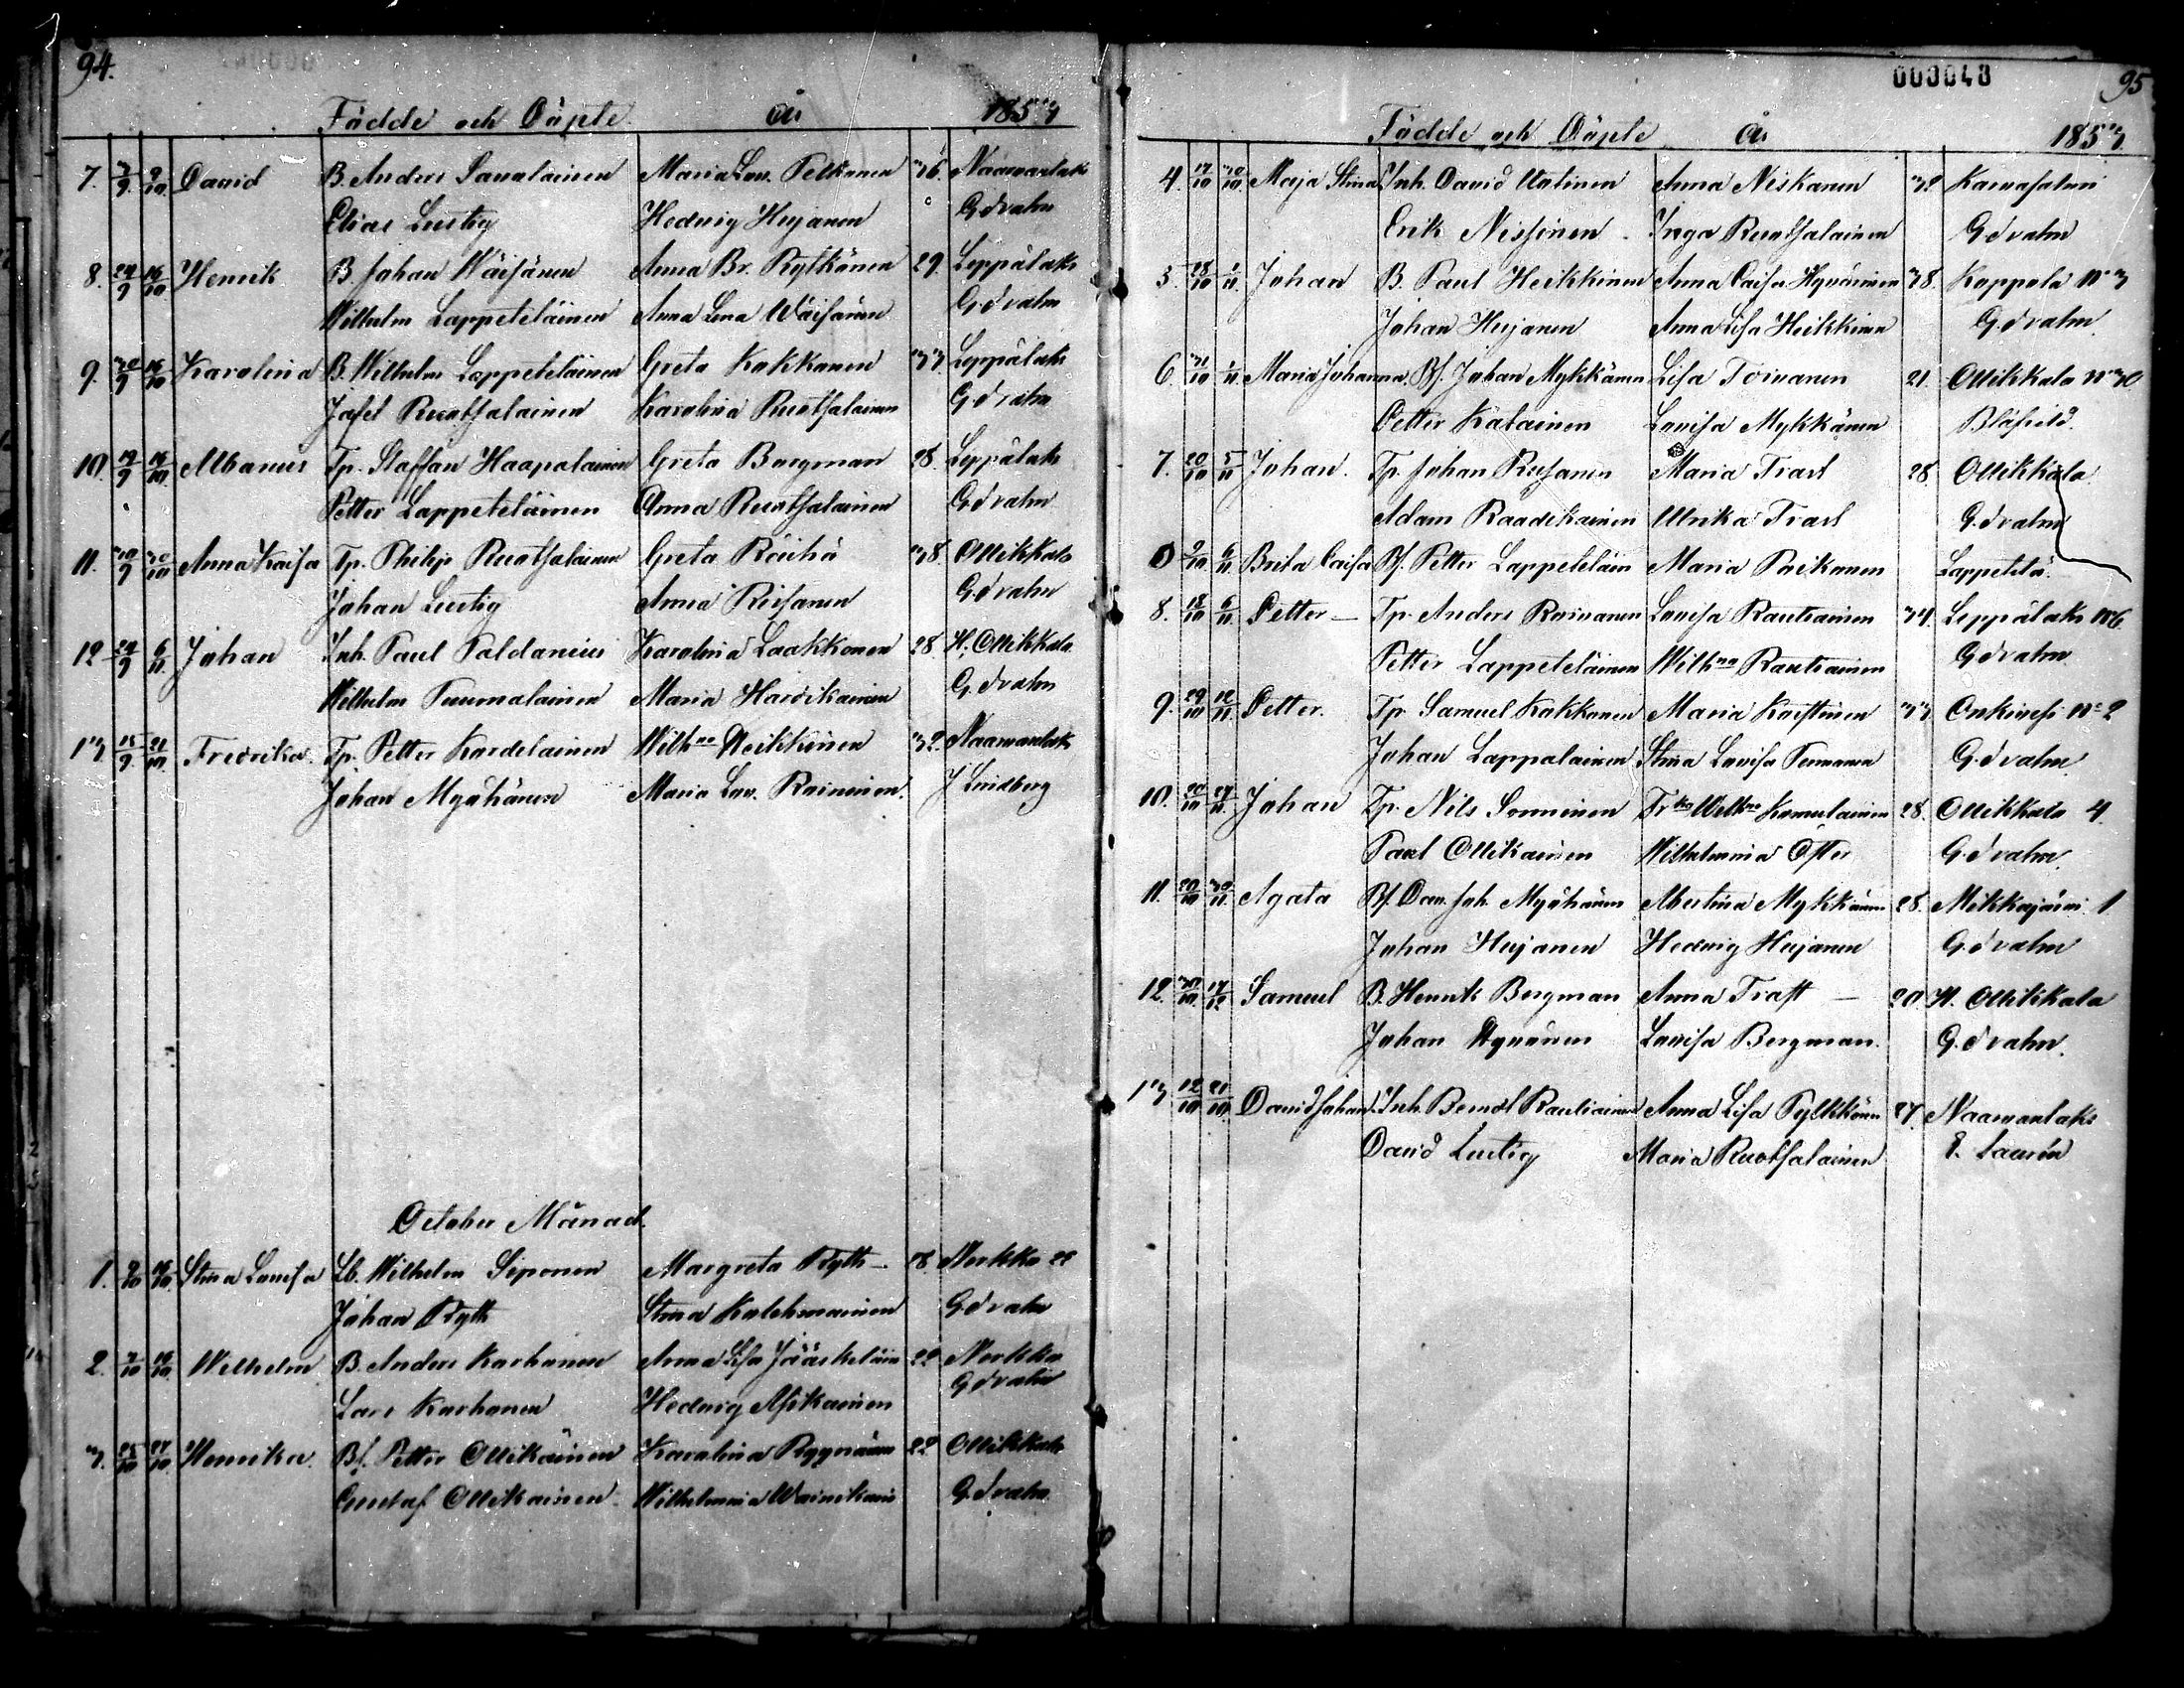 94.
Födde och Döpte År 1853
7. 7/9 9/10 David B. Anders Savolainen Maria Lov. Pelkonen 36. Naamanlaks
Elias Lustig Hedwig Hujanen Gedvalm
8. 29/9 16/10 Henrik B. Johan Wäisänen Anna Br. Rytkönen 29. Leppälaks
Wilhelm Lappeteläinen Anna Lena Wäisänen Gedvalm
9. 30/9 16/10 Karolina B. Wilhelm Lappeteläinen Greta Kakkonen 33 Leppälaks
Josef Ruotsalainen Karolina Ruotsalainen Gedvalm
10. 19/9 16/10 Albanus Tp. Staffan Haapalainen Greta Bergman 28. Leppälaks
Petter Lappeteläinen Anna Ruotsalainen Gedvalm
11. 30/9 30/10 Anna Kaisa Tp. Philip Ruotsalainen Greta Röühä 38. Ollikkala
Johan Lustig Anna Riisanen Gedvalm
12 29/9 6/11 Johan Inh. Paul Paldanius Karolina Laakkonen 28. H. Ollikkala
Wilhelm Tuomalainen Maria Harvikainen Gedvalm
13 15/9 21/10 Fredrika. Tp. Petter Kardelainen Wilh:na Heikkinen 32. Naamanlaks
Johan Myöhänen Maria Lov. Raininen. J Lindberg
October Månad.
1. 9/10 16/10 Stina Lovisa Lb. Wilhelm Siponen Margreta Ryth – 28. Nerkko 22
Johan Ryth Stina Kolehmainen Gedvalm
2. 7/10 16/10 Wilhelm B. Anders Karhunen Anna Lisa Jääskeläin 22 Nerkko
Lars Karhunen Hedwig Asikainen Gedvalm
3. 25/10 27/10 Henrika. Bs. Petter Ollikainen Karolina Ryynänen 22 Ollikkala
Gustaf Ollikainen Wilhelmina Wainikain Gedvalm
000048 95
Födde och Döpte År 1853
4. 17/10 30/10 Maja Stina Inh. David Utulinen Anna Niskanen 32 Kamasalmi
Erik Nissinen Inga Ruotsalainen Gedvalm
5. 28/10 1/11 Johan B. Paul Heikkinen Anna Caisa Hyvärinen 38. Koppola No 3
Johan Hujanen Anna Lisa Heikkinen Gedvalm
6 31/10 1/11 Maria Johanna, Bs. Johan Mykkänen Lisa Toivanen 21. Ollikkala No 30
Petter Kalainen Lovisa Mykkänen Blåfield.
7. 20/10 5/11 Johan. Tp. Johan Riisanen Maria Trast 28. Ollikkala
Adam Raadikainen Ulrika Trast Gedvalm
0 2/10 6/11 Brita Caisa Bs. Petter Lappeteläin Maria Pirkanen Lappetelä.
8. 18/10 6/11 Petter – Tp. Anders Roivanen Lovisa Rautiainen 34. Leppälaks No 6
Petter Lappeteläinen Wilh:na Rautiainen Gedvalm
9. 29/10 12/11 Petter. Tp. Samuel Kakkonen Maria Karstinen 33. Onkivesi No 2
Johan Lappalainen Stina Lovisa Tenmanen Gedvalm
10. 20/10 27/11 Johan Tp. Nils Sonninen Fr:ka Wilh:na Kumulainen 28. Ollikkala 4.
Paul Ollikainen Wilhelmina Öster Gedvalm
11. 20/10 30/11 Agata Bs. Dav. Joh. Myöhänen Albertina Mykkänen 28. Mikkajärvi 1
Johan Hujanen Hedwig Hujanen Gedvalm
12. 30/10 17/12 Samuel B. Henrik Bergman Anna Trast – 20. H. Ollikkala
Johan Hynönen Lovisa Bergman. Gedvalm
13 12/10 21/10 David Johan. Inh. Berndt Rautiainen Anna Lisa Pylkkönen 27. Naamanlaks
David Lustig Maria Ruotsalainen E. Laurén